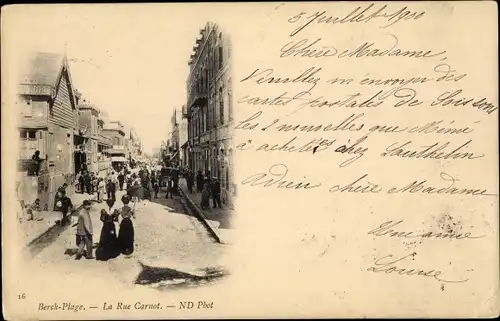 5 Juillet 1900
Chère Madame,
Veuillez m'envoyer des
cartes postales de Soissons
les 2 nouvelles que Mémé
a achetés chez
chère Madame
Une amie
Louise
16 Berch-Plage. — La Rue Carnot. — ND Phot